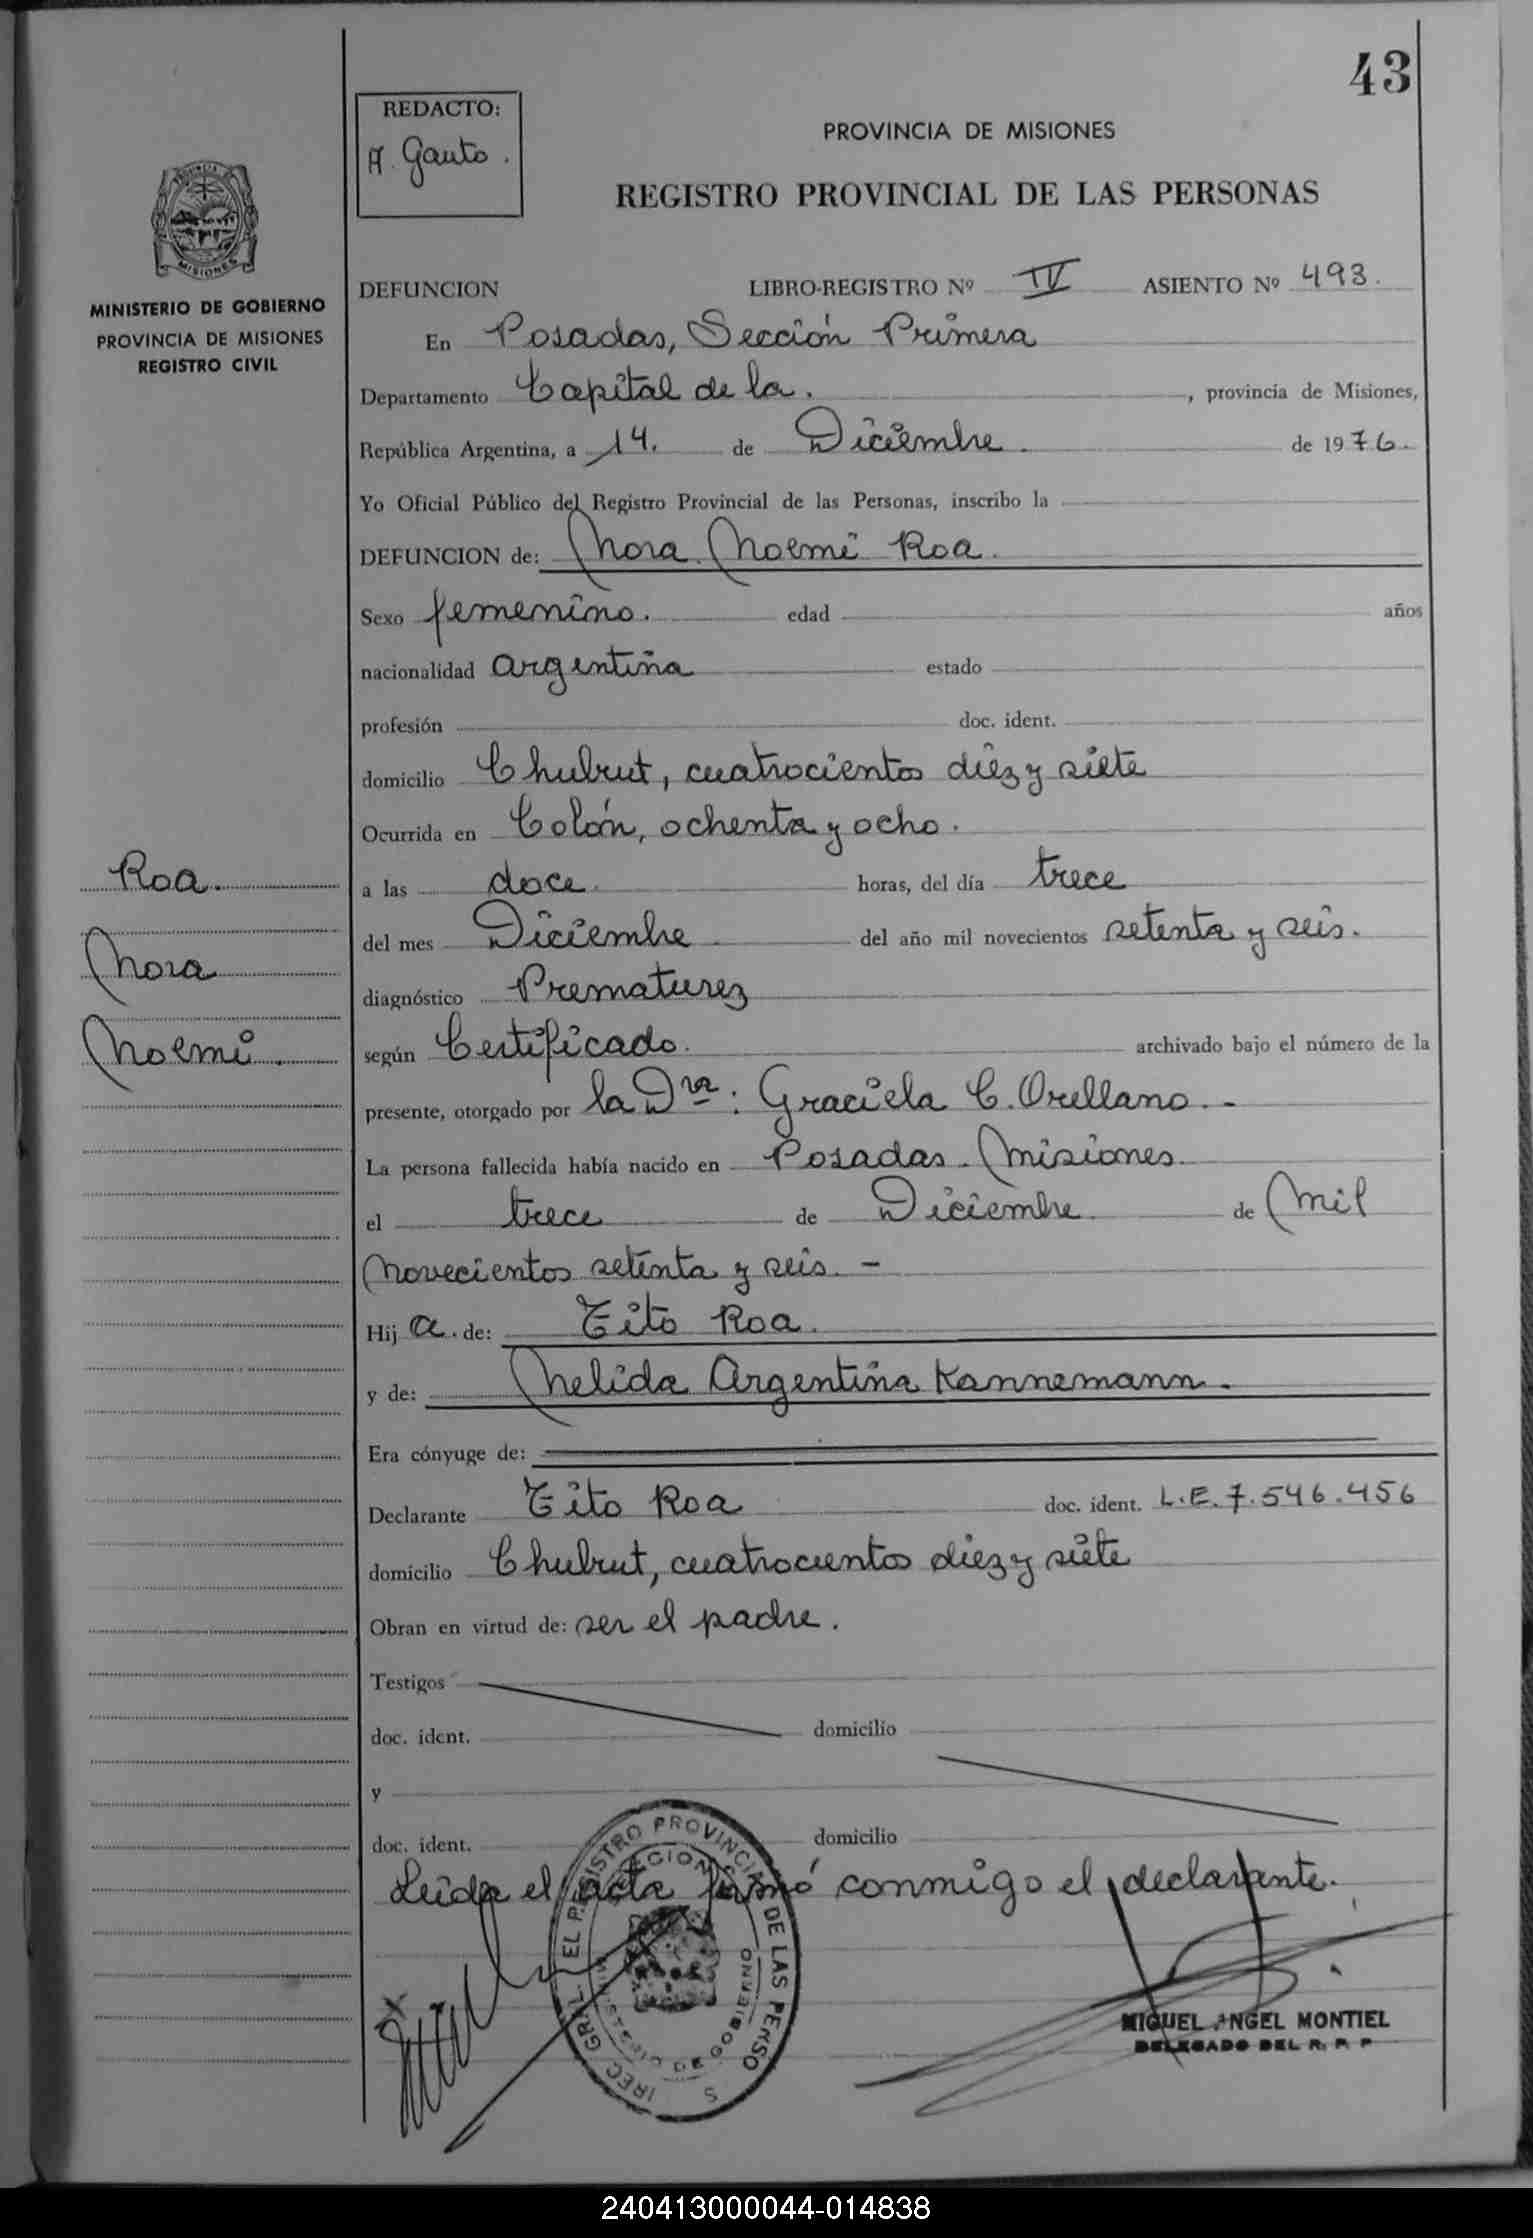 43
REDACTO:
A. Gauto.
PROVINCIA DE MISIONES
REGISTRO PROVINCIAL DE LAS PERSONAS
MISIONES
MINISTERIO DE GOBIERNO
PROVINCIA DE MISIONES
REGISTRO CIVIL
DEFUNCION LIBRO-REGISTRO Nº IV ASIENTO Nº 493.
En Posadas, Sección Primera
Departamento Capital de la. , provincia de Misiones,
República Argentina, a 14. de Diciembre. de 1976.
Yo Oficial Público del Registro Provincial de las Personas, inscribo la
DEFUNCION de: Nora Noemí Roa.
Sexo femenino. edad años
nacionalidad argentina estado
profesión doc. ident.
domicilio Chubut, cuatrocientos diez y siete
Ocurrida en Colón, ochenta y ocho.
a las doce. horas, del día trece
del mes Diciembre del año mil novecientos setenta y seis.
diagnóstico Prematurez
según Certificado. archivado bajo el número de la
presente, otorgado por la Dra: Graciela C. Orellano. -
La persona fallecida había nacido en Posadas. Misiones.
el trece de Diciembre. de Mil
Novecientos setenta y seis. -
Hij a. de: Tito Roa.
y de: Nelida Argentina Kannemann.
Era cónyuge de:
Declarante Tito Roa doc. ident. L.E. 7.546.456
domicilio Chubut, cuatrocientos diez y siete
Obran en virtud de: ser el padre.
Testigos
doc. ident. domicilio
y
doc. ident. domicilio
Leida el acta firmó conmigo el declarante.
Roa.
Nora
Noemí.
DIREC. GRAL. EL REGISTRO PROVINCIAL DE LAS PERSO S
MINISTERIO DE GOBIERNO
MIGUEL ANGEL MONTIEL
DELEGADO DEL R. P. P
240413000044-014838